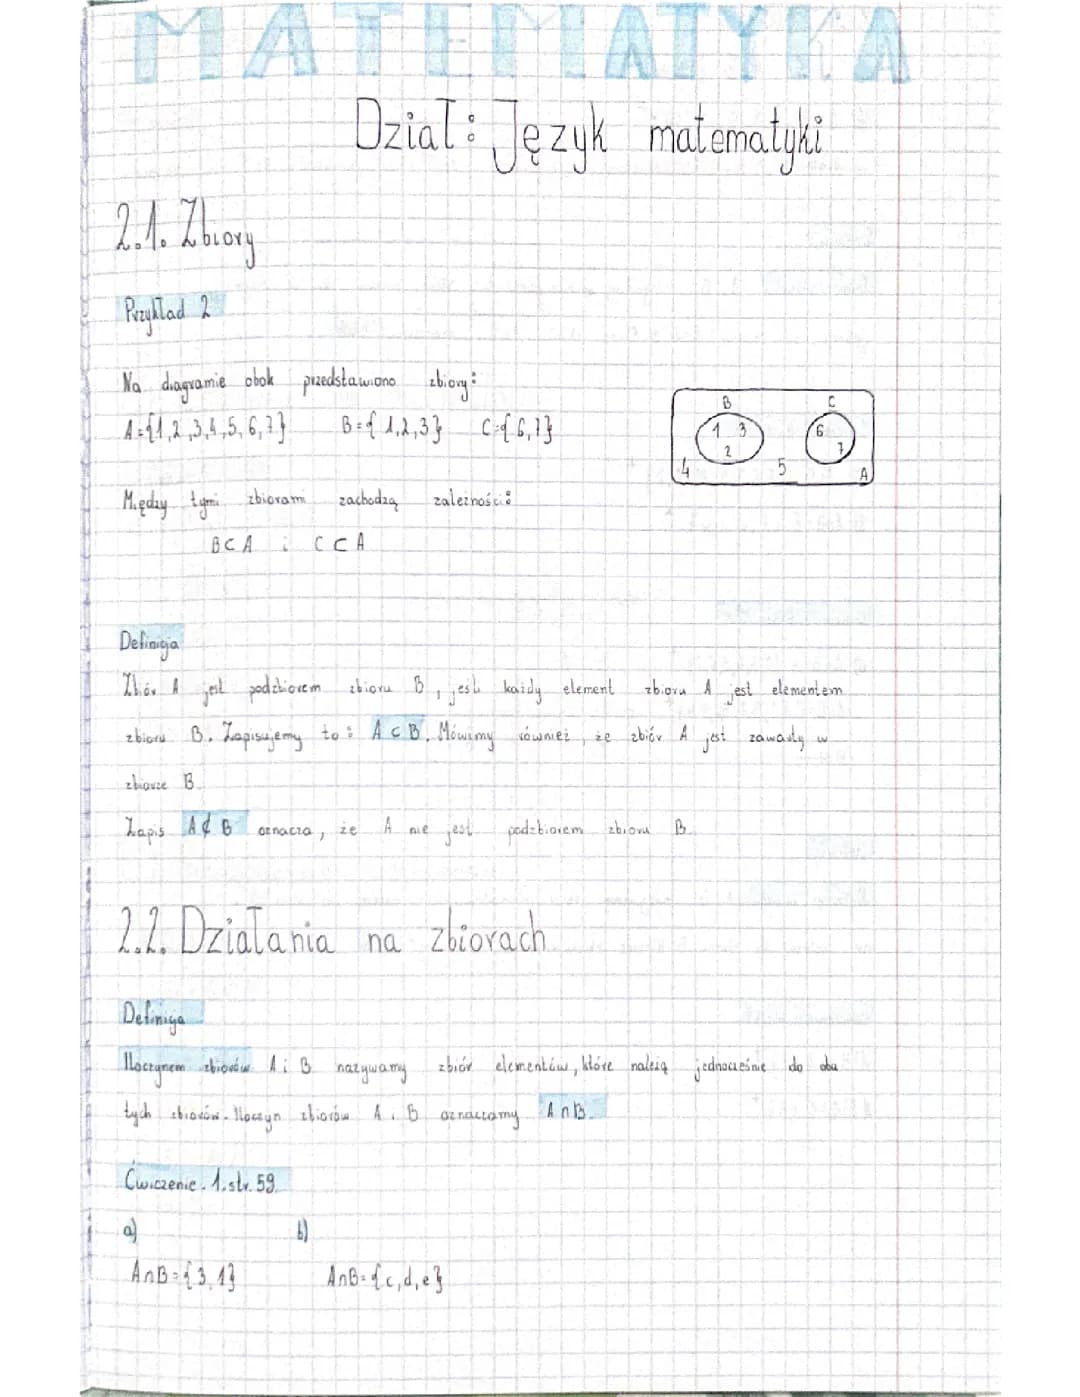 MATEMATYKA
Dział: Język matematyki
2.1. Zbiory
Przykład 2
Na diagramie obok przedstawiono zbiory:
A={1,2,3,4,5,6,7} B={1,2,3} C={6,7}
B C
1 3 6
2 7
4 5 A
Między tymi zbiorami zachodzą zależności:
B⊂A i C⊂A
Definicja
Zbiór A jest podzbiorem zbioru B, jeśli każdy element zbioru A jest elementem
zbioru B. Zapisujemy to: A⊂B. Mówimy również, że zbiór A jest zawarty w
zbiorze B.
Zapis A⊄B oznacza, że A nie jest podzbiorem zbioru B.
2.2. Działania na zbiorach
Definicja
Iloczynem zbiorów A i B nazywamy zbiór elementów, które należą jednocześnie do obu
tych zbiorów. Iloczyn zbiorów A i B oznaczamy A∩B.
Ćwiczenie. 1. str. 59.
a) b)
A∩B={3,1} A∩B={c,d,e}